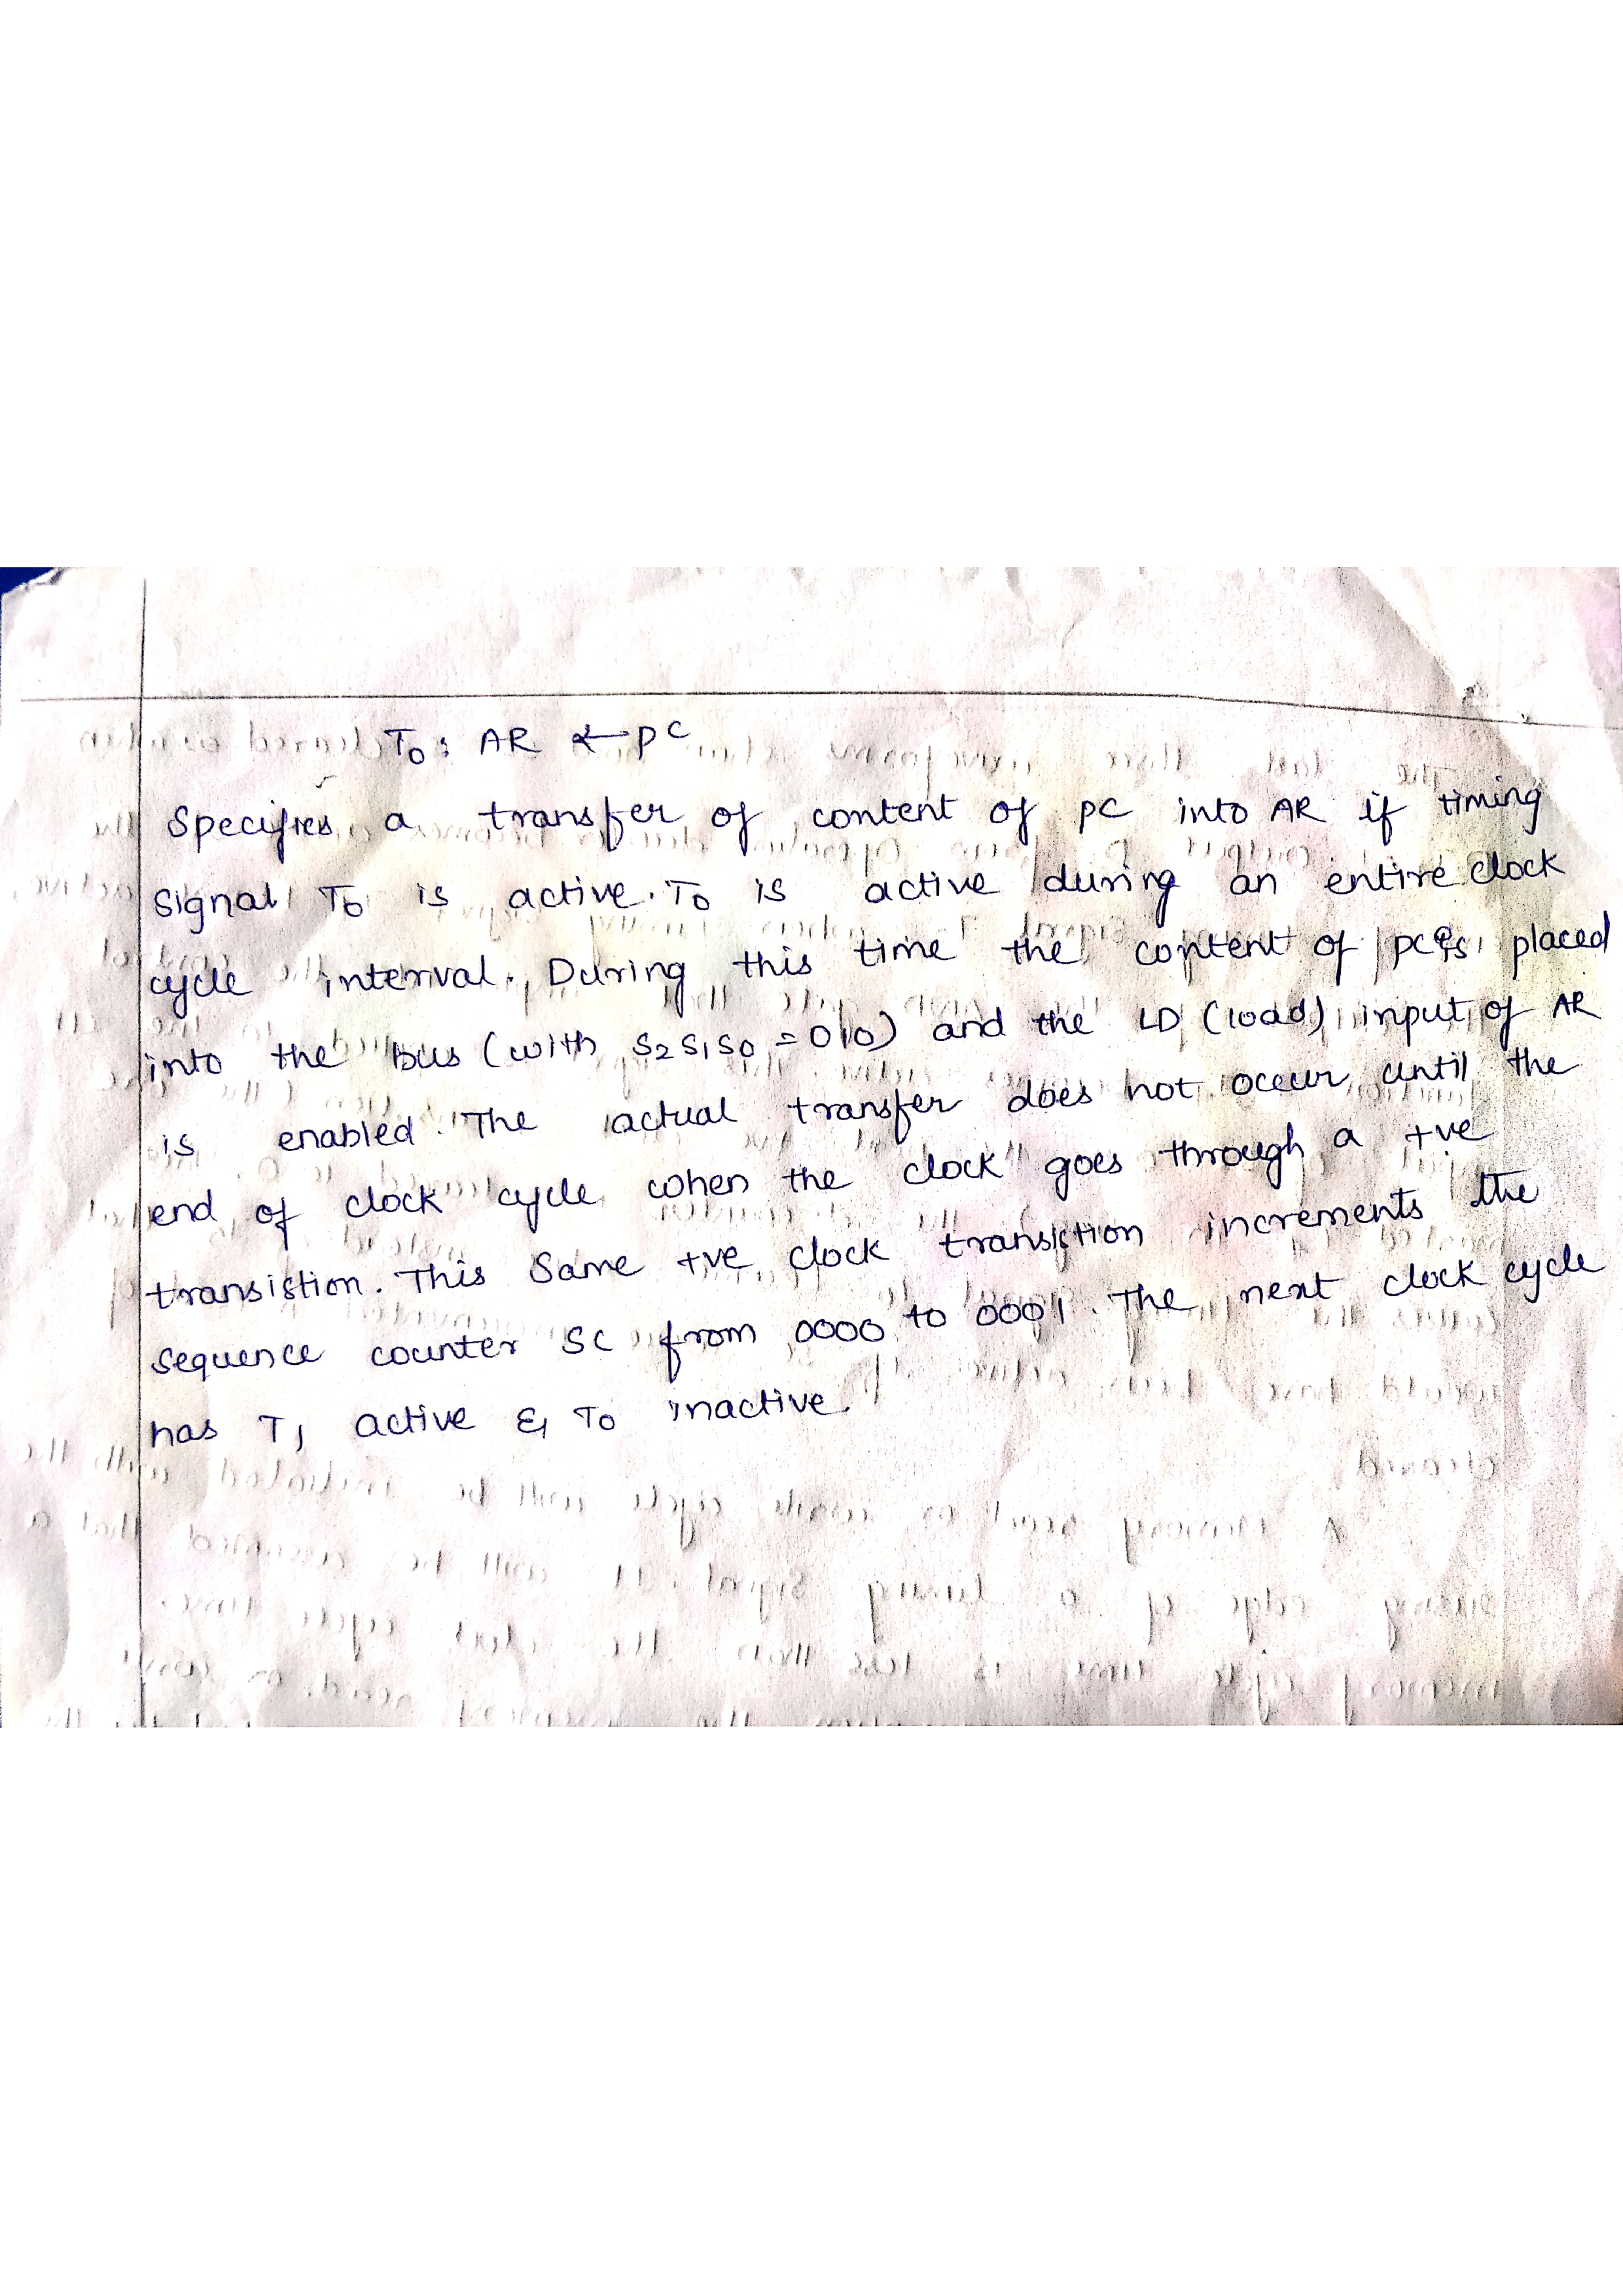 T0 : AR ← PC
Specifies a transfer of content of PC into AR if timing
signal T0 is active. T0 is active during an entire clock
cycle interval. During this time the content of PC is placed
into the bus (with S2S1S0 = 010) and the LD (load) input of AR
is enabled. The actual transfer does not occur until the
end of clock cycle when the clock goes through a +ve
transistion. This same +ve clock transistion increments the
sequence counter SC from 0000 to 0001. The next clock cycle
has T1 active & T0 inactive.